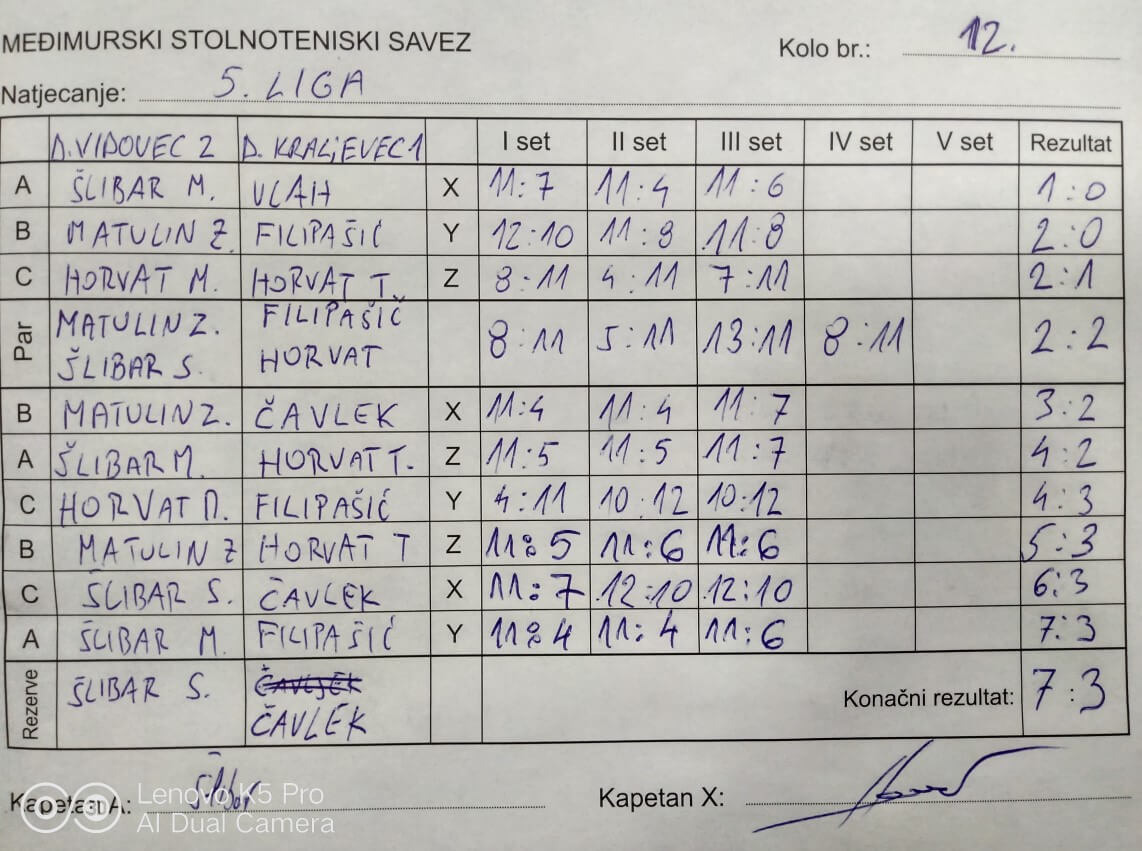 MEĐIMURSKI STOLNOTENISKI SAVEZ
Kolo br.: 12.
Natjecanje: 5. LIGA
D. VIDOVEC 2 D. KRALJEVEC 1 I set II set III set IV set V set Rezultat
A ŠLIBAR M. VLAH X 11:7 11:4 11:6 1:0
B MATULIN Z. FILIPAŠIĆ Y 12:10 11:9 11:8 2:0
C HORVAT M. HORVAT T. Z 8:11 4:11 7:11 2:1
Par MATULIN Z. FILIPAŠIČ 8:11 5:11 13:11 8:11 2:2
ŠLIBAR S. HORVAT
B MATULIN Z. ČAVLEK X 11:4 11:4 11:7 3:2
A ŠLIBAR M. HORVAT T. Z 11:5 11:5 11:7 4:2
C HORVAT M. FILIPAŠIĆ Y 4:11 10:12 10:12 4:3
B MATULIN Z HORVAT T Z 11:5 11:6 11:6 5:3
C ŠLIBAR S. ČAVLEK X 11:7 12:10 12:10 6:3
A ŠLIBAR M. FILIPAŠIĆ Y 11:4 11:4 11:6 7:3
Rezerve ŠLIBAR S. ČAVLEK Konačni rezultat: 7:3
Kapetan A: Kapetan X:
Lenovo K5 Pro
AI Dual Camera